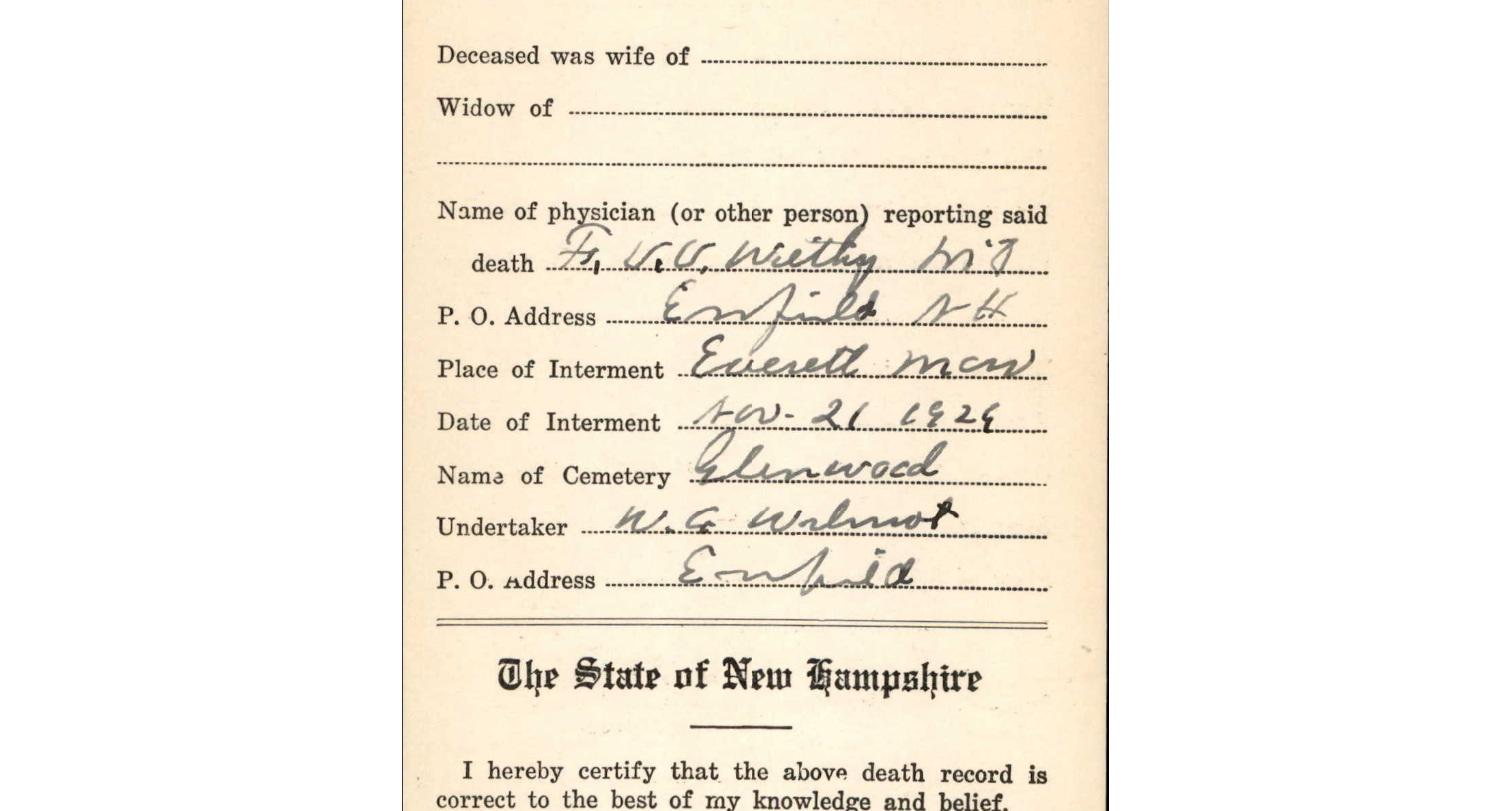 Deceased was wife of
Widow of
Name of physician (or other person) reporting said
death F. V. V. MD
P. O. Address Enfield NH
Place of Interment Everett Mass
Date of Interment Nov- 21 1929
Name of Cemetery Glenwood
Undertaker W. G Wilmot
P. O. Address Enfield
The State of New Hampshire
I hereby certify that the above death record is
correct to the best of my knowledge and belief.